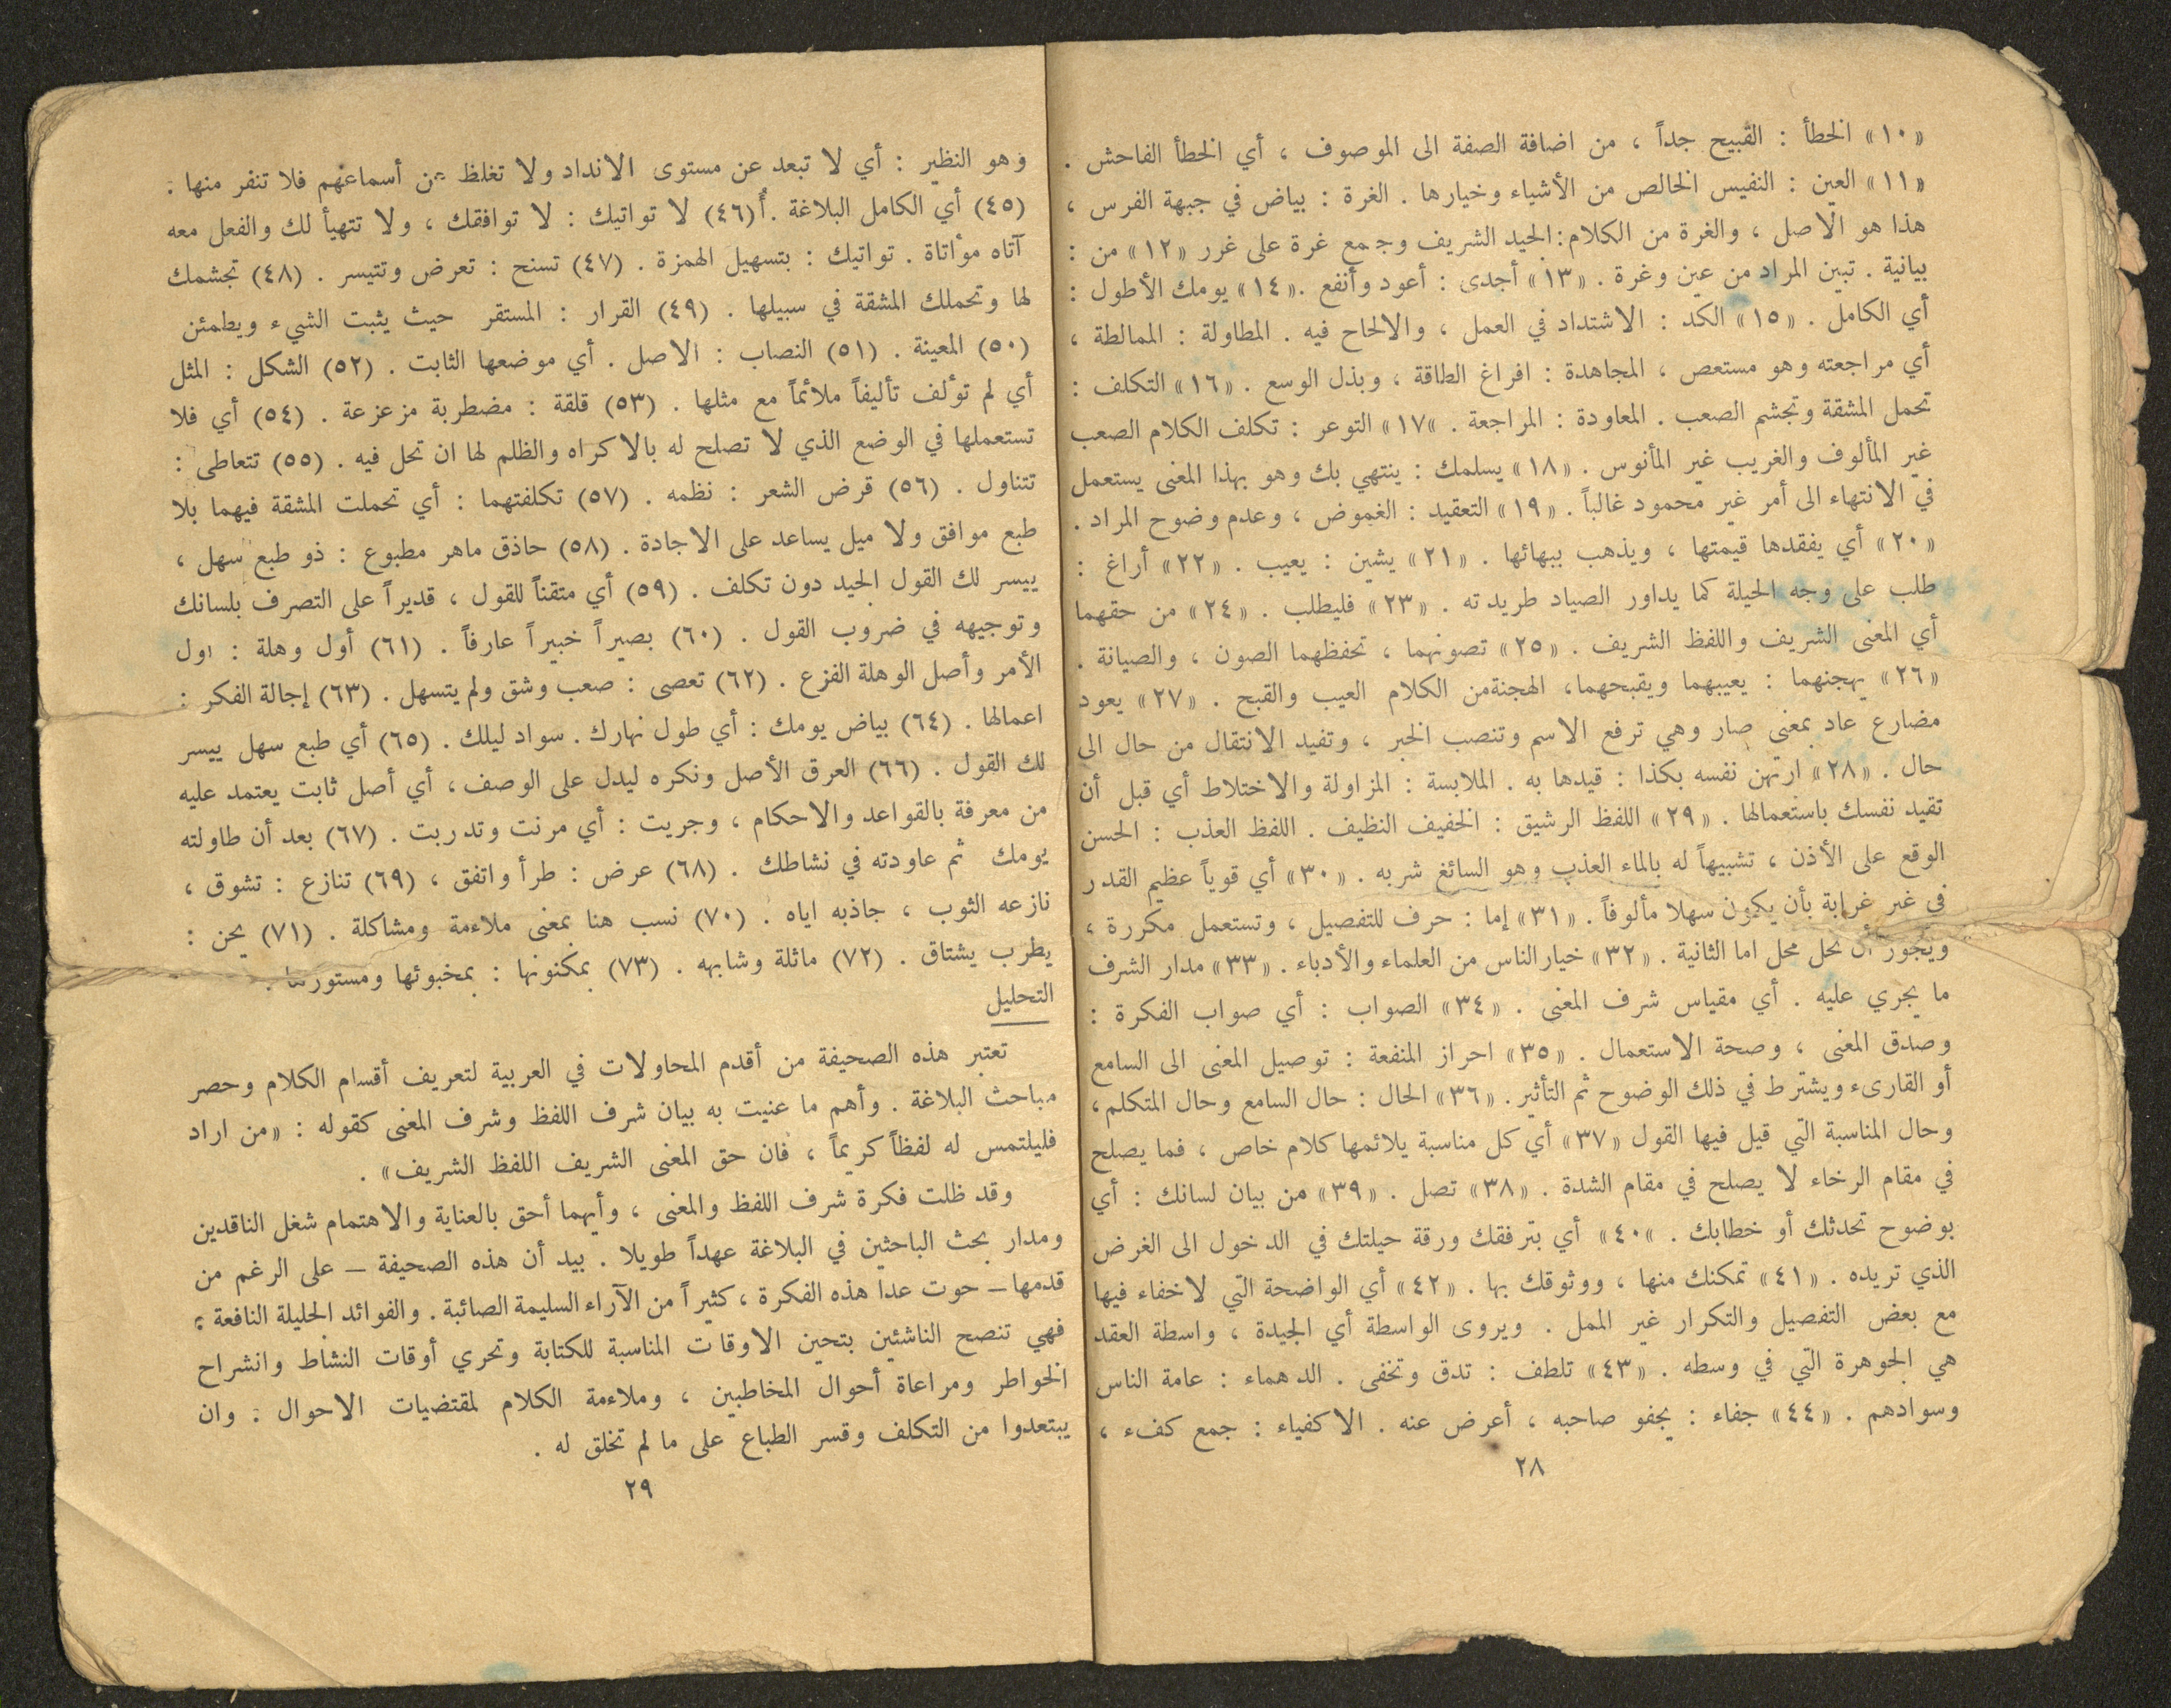 «١٠» الخطأ : القبيح جداً ، من اضافة الصفة الى الموصوف ، أي الخطأ الفاحش .
«١١» العين : النفيس الخالص من الأشياء وخيارها . الغرة : بياض في جبهة الفرس ،
هذا هو الاصل ، والغرة من الكلام : الجيد الشريف وجمع غرة على غرر «١٢» من :
بيانية . تبين المراد من عين وغرة . «١٣» أجدى : أعود وأنفع . «١٤» يومك الأطول :
أي الكامل . «١٥» الكد : الاشتداد في العمل ، والالحاح فيه . المطاولة : الممالطة ،
أي مراجعته وهو مستعص ، المجاهدة : افراغ الطاقة ، وبذل الوسع . «١٦» التكلف :
تحمل المشقة وتجشم الصعب . المعاودة : المراجعة . »١٧» التوعر : تكلف الكلام الصعب
غير المألوف والغريب غير المأنوس . «١٨» يسلمك : ينتهي بك وهو بهذا المعنى يستعمل
في الانتهاء الى أمر غير محمود غالباً . «١٩» التعقيد : الغموض ، وعدم وضوح المراد .
«٢٠» أي يفقدها قيمتها ، ويذهب ببهائها . «٢١» يشين : يعيب . «٢٢» أراغ :
طلب على وجه الحيلة كما يداور الصياد طريدته . «٢٣» فليطلب . «٢٤» من حقهما
أي المعنى الشريف واللفظ الشريف . «٢٥» تصونهما ، تحفظهما الصون ، والصيانة .
«٢٦» يهجنهما : يعيبهما ويقبحهما، الهجنةمن الكلام العيب والقبح . «٢٧» يعود
مضارع عاد بمعنى صار وهي ترفع الاسم وتنصب الخبر ، وتفيد الانتقال من حال الى
حال . «٢٨» ارتهن نفسه بكذا : قيدها به . الملابسة : المزاولة والاختلاط أي قبل أن
تقيد نفسك باستعمالها . «٢٩» اللفظ الرشيق : الخفيف النظيف . اللفظ العذب : الحسن
الوقع على الأذن ، تشبيهاً له بالماء العذب وهو السائغ شربه . «٣٠» أي قوياً عظيم القدر
في غير غرابة بأن يكون سهلا مألوفاً . «٣١» إما : حرف للتفصيل ، وتستعمل مكررة ،
ويجوز أن تحل محل اما الثانية . «٣٢» خيار الناس من العلماء والأدباء . «٣٣» مدار الشرف
ما يجري عليه . أي مقياس شرف المعنى . «٣٤» الصواب : أي صواب الفكرة :
وصدق المعنى ، وصحة الاستعمال . «٣٥» احراز المنفعة : توصيل المعنى الى السامع
أو القارىء ويشترط في ذلك الوضوح ثم التأثير . «٣٦» الحال : حال السامع وحال المتكلم،
وحال المناسبة التي قيل فيها القول «٣٧» أي كل مناسبة يلائمها كلام خاص ، فما يصلح
في مقام الرخاء لا يصلح في مقام الشدة . «٣٨» تصل . «٣٩» من بيان لسانك : أي
بوضوح تحدثك أو خطابك . »٤٠» أي بترفقك ورقة حيلتك في الدخول الى الغرض
الذي تريده . «٤١» تمكنك منها ، ووثوقك بها . «٤٢» أي الواضحة التي لاخفاء فيها
مع بعض التفصيل والتكرار غير الممل . ويروى الواسطة أي الجيدة ، واسطة العقد
هي الجوهرة التي في وسطه . «٤٣» تلطف : تدق وتخفى . الدهماء : عامة الناس
وسوادهم . «٤٤» جفاء : يجفو صاحبه ، أعرض عنه . الاكفياء : جمع كفء ،
٢٨
وهو النظير : أي لا تبعد عن مستوى الانداد ولا تغلظ عن أسماعهم فلا تنفر منها .
(٤٥) أي الكامل البلاغة . (٤٦) لا تواتيك : لا توافقك ، ولا تتهيأ لك والفعل معه
آتاه مؤاتاة . تواتيك : بتسهيل الهمزة . (٤٧) تسنح : تعرض وتتيسر . (٤٨) تجشمك
لها وتحملك المشقة في سبيلها . (٤٩) القرار : المستقر حيث يثبت الشيء ويطمئن
(٥٠) المعينة . (٥١) النصاب : الاصل . أي موضعها الثابت . (٥٢) الشكل : المثل
أي لم تؤلف تأليفاً ملائماً مع مثلها . (٥٣) قلقة : مضطربة مزعزعة . (٥٤) أي فلا
تستعملها في الوضع الذي لا تصلح له بالاكراه والظلم لها ان تحل فيه . (٥٥) تتعاطى :
تتناول . (٥٦) قرض الشعر : نظمه . (٥٧) تكلفتهما : أي تحملت المشقة فيهما بلا
طبع موافق ولا ميل يساعد على الاجادة . (٥٨) حاذق ماهر مطبوع : ذو طبع سهل ،
ييسر لك القول الجيد دون تكلف . (٥٩) أي متقناً للقول ، قديراً على التصرف بلسانك
وتوجيهه في ضروب القول . (٦٠) بصيراً خبيراً عارفاً . (٦١) أول وهلة : اول
الأمر وأصل الوهلة الفزع . (٦٢) تعصى : صعب وشق ولم يتسهل . (٦٣) إجالة الفكر :
اعمالها . (٦٤) بياض يومك : أي طول نهارك . سواد ليلك . (٦٥) أي طبع سهل ييسر
لك القول . (٦٦) العرق الأصل ونكره ليدل على الوصف ، أي أصل ثابت يعتمد عليه
من معرفة بالقواعد والاحكام ، وجريت : أي مرنت وتدربت . (٦٧) بعد أن طاولته
يومك ثم عاودته في نشاطك . (٦٨) عرض : طرأ واتفق ، (٦٩) تنازع : تشوق ،
نازعه الثوب ، جاذبه اياه . (٧٠) نسب هنا بمعنى ملاءمة ومشاكلة . (٧١) يحن :
يطرب يشتاق . (٧٢) ماثلة وشابهه . (٧٣) بمكنونها : بمخبوئها ومستورها .
التحليل
تعتبر هذه الصحيفة من أقدم المحاولات في العربية لتعريف أقسام الكلام وحصر
مباحث البلاغة . وأهم ما عنيت به بيان شرف اللفظ وشرف المعنى كقوله : «من اراد
فليلتمس له لفظاً كريماً ، فان حق المعنى الشريف اللفظ الشريف» .
وقد ظلت فكرة شرف اللفظ والمعنى ، وأيهما أحق بالعناية والاهتمام شغل الناقدين
ومدار بحث الباحثين في البلاغة عهداً طويلا . بيد أن هذه الصحيفة – على الرغم من
قدمها – حوت عدا هذه الفكرة ، كثيراً من الآراء السليمة الصائبة . والفوائد الجليلة النافعة ؛
فهي تنصح الناشئين بتحين الاوقات المناسبة للكتابة وتحري أوقات النشاط وانشراح
الخواطر ومراعاة أحوال المخاطبين ، وملاءمة الكلام لمقتضيات الاحوال . وان
يبتعدوا من التكلف وقسر الطباع على ما لم تخلق له .
٢٩